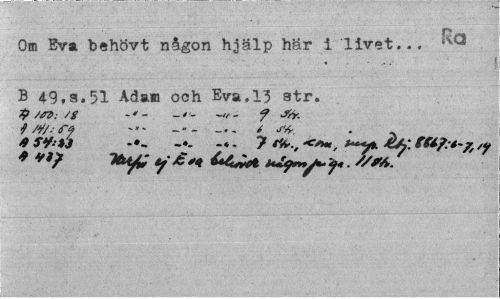 Om Eva behövt någon hjälp här i livet... Ra
B 49,s.51 Adam och Eva.13 str.
A 100:18 -"- -"- -"- 9 str.
A 141:59 -"- -"- -"- 6 str.
A 54:23 -"- -"- -"- 7 str., 8667:6-7,14
A 437 Varför ej Eva behövde någon piga. 11 str.